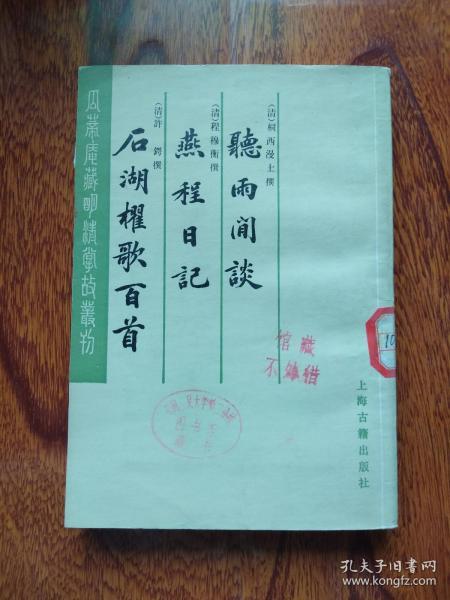 (清)桐西漫士撰
聽雨閒談
(清)程穆衡撰
燕程日記
(清)許鍔撰
石湖櫂歌百首
瓜蒂庵藏明清掌故叢刊
上海古籍出版社
馆藏
10
孔夫子旧书网
www.kongfz.com